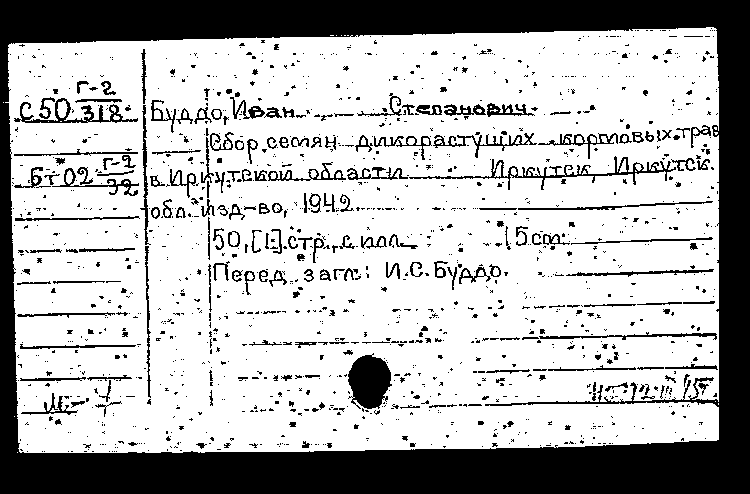 С50 Г-2/318
Буддо, Иван Степанович.
Сбор семян дикорастущих кормовых трав
Бт02 Г-2/32
в Иркутской области Иркутск, Иркутск.
обл. изд-во, 1942.
50, [1] стр., с илл. 15 cm.
Перед загл.: И.С. Буддо.